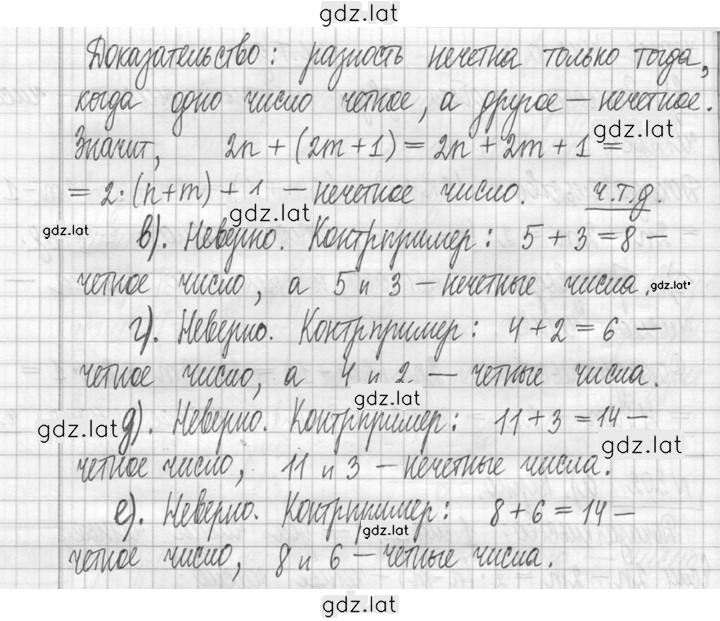 gdz.lat
Доказательство: разность нечетна только тогда,
когда одно число четное, а другое — нечетное.
gdz.lat
Значит, 2n + (2m + 1) = 2n + 2m + 1 =
= 2·(n+m) + 1 — нечетное число. ч.т.д.
gdz.lat
gdz.lat
в). Неверно. Контрпример: 5 + 3 = 8 —
четное число, а 5 и 3 — нечетные числа.
gdz.lat
г). Неверно. Контрпример: 4 + 2 = 6 —
четное число, а 4 и 2 — четные числа.
gdz.lat
gdz.lat
д). Неверно. Контрпример: 11 + 3 = 14 —
gdz.lat
четное число, 11 и 3 — нечетные числа.
е). Неверно. Контрпример: 8 + 6 = 14 —
gdz.lat
четное число, 8 и 6 — четные числа.
gdz.lat